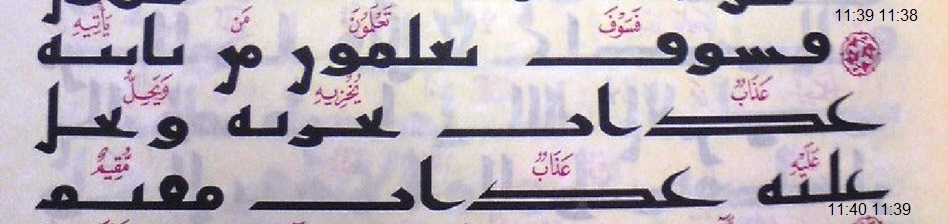 11:39 11:38
فسوف تعلمون من ياتيه
فَسَوْفَ تَعْلَمُونَ مَن يَأْتِيهِ
عذاب يخزيه ويحل
عَذَابٌ يُخْزِيهِ وَيَحِلُّ
عليه عذاب مقيم
عَلَيْهِ عَذَابٌ مُّقِيمٌ
11:40 11:39